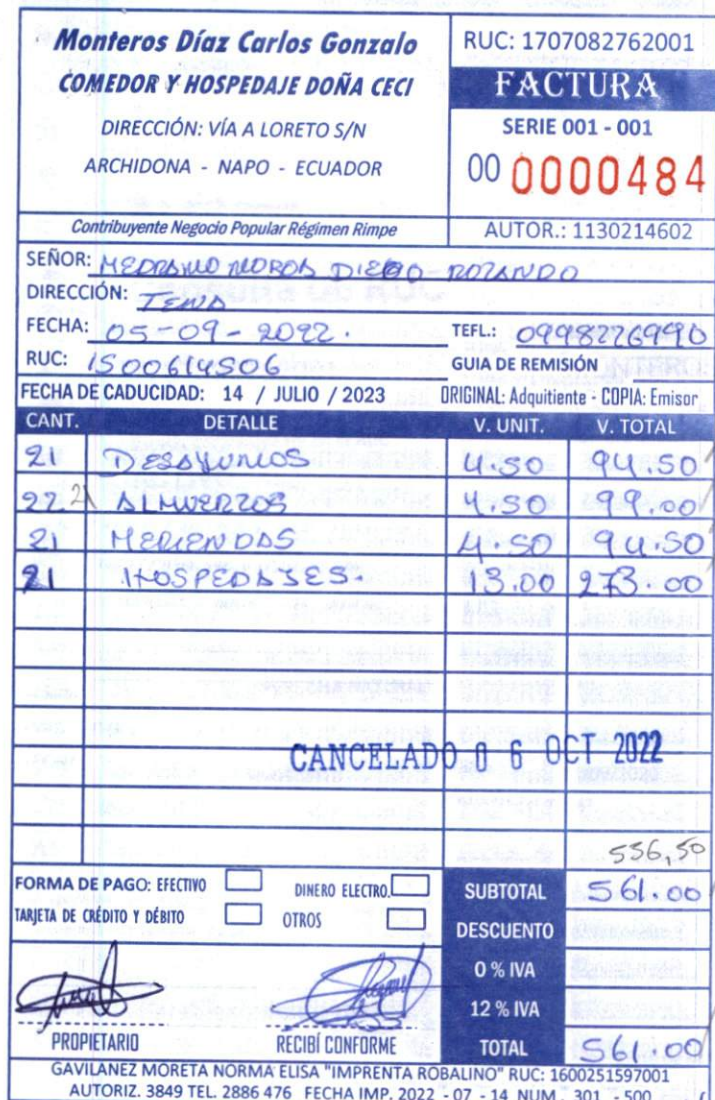 Monteros Díaz Carlos Gonzalo
COMEDOR Y HOSPEDAJE DOÑA CECI
DIRECCIÓN: VÍA A LORETO S/N
ARCHIDONA - NAPO - ECUADOR
Contribuyente Negocio Popular Régimen Rimpe
RUC: 1707082762001
FACTURA
SERIE 001 - 001
00 0000484
AUTOR.: 1130214602
SEÑOR: MEDRANO MOROA DIEGO ROLANDO
DIRECCIÓN: TENA
FECHA: 05-09-2022. TEFL.: 0998276990
RUC: 1500614506 GUIA DE REMISIÓN
FECHA DE CADUCIDAD: 14 / JULIO / 2023 ORIGINAL: Adquitiente - COPIA: Emisor
CANT. DETALLE V. UNIT. V. TOTAL
21 DESAYUNOS 4.50 94.50
22 21 ALMUERZOS 4.50 99.00
21 MERIENDAS 4.50 94.50
21 HOSPEDAJES. 13.00 273.00
CANCELADO 0 6 OCT 2022
556,50
FORMA DE PAGO: EFECTIVO DINERO ELECTRO. SUBTOTAL 561.00
TARJETA DE CRÉDITO Y DÉBITO OTROS DESCUENTO
0 % IVA
12 % IVA
PROPIETARIO RECIBÍ CONFORME TOTAL 561.00
GAVILANEZ MORETA NORMA ELISA "IMPRENTA ROBALINO" RUC: 1600251597001
AUTORIZ. 3849 TEL. 2886 476 FECHA IMP. 2022 - 07 - 14 NUM. 301 - 500